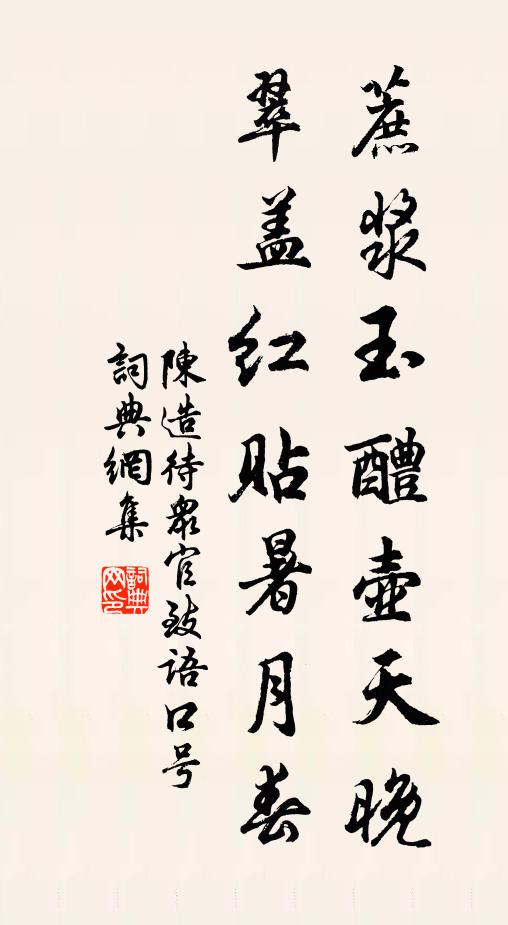 蔗漿玉醴壺天晚
翠盖紅貼暑月春
陳造待衆官致語口号
詞典網集
詞典网印